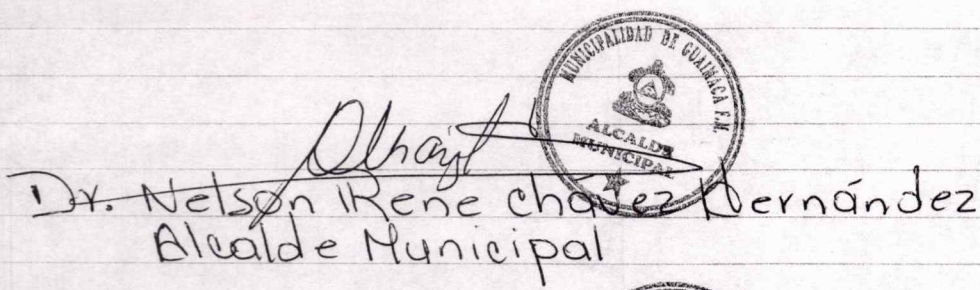 MUNICIPALIDAD DE GUAIMACA F.M.
ALCALDE
MUNICIPAL
Dr. Nelson Rene Chávez Hernández
Alcalde Municipal